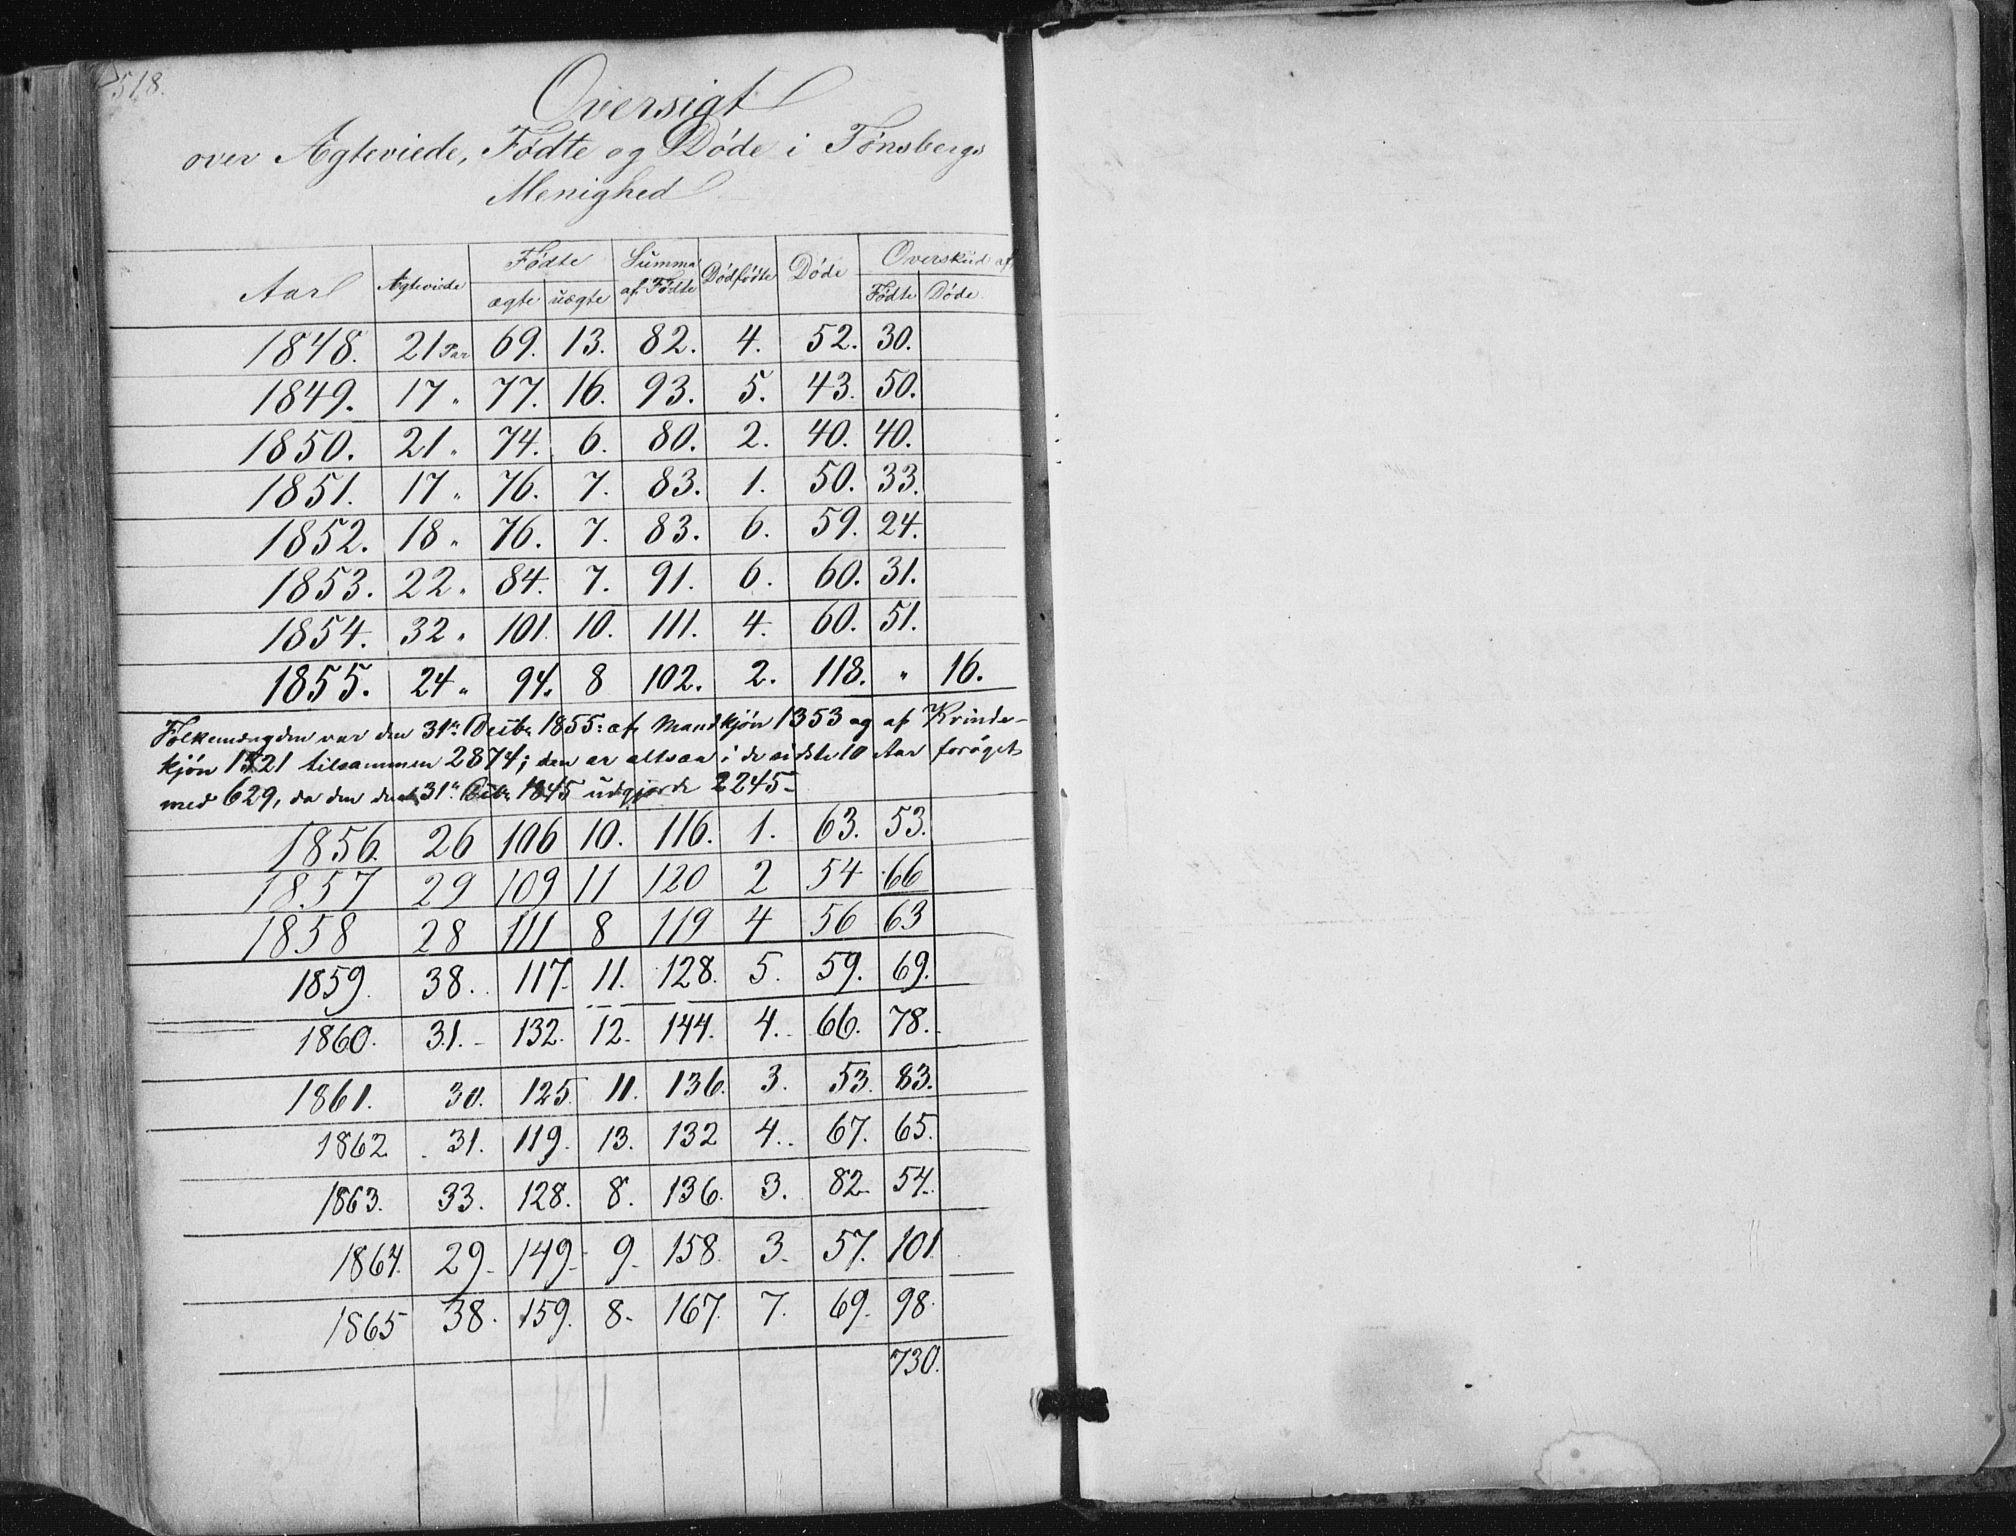 518.
Oversigt
over Ægteviede, Fødte og Døde i Tønsbergs
Menighed
Aar Ægteviede Fødte Summa af Fødte Dødfødte Døde Overskud af
ægte uægte Fødte Døde
1848. 21 Par 69. 13. 82. 4. 52. 30.
1849. 17 " 77. 16. 93. 5. 43. 50.
1850. 21 " 74. 6. 80. 2. 40. 40.
1851. 17 " 76. 7. 83. 1. 50. 33.
1852. 18 " 76. 7. 83. 6. 59. 24.
1853. 22 " 84. 7. 91. 6. 60. 31.
1854. 32 " 101. 10. 111. 4. 60. 51.
1855. 24 " 94. 8 102. 2. 118. " 16.
Folkemængden var den 31te Decbr. 1855: af Mandkjøn 1353 og af Kvinde-
kjøn 1521 tilsammen 2874; den er altsaa i de sidste 10 Aar forøget
med 629, da den den 31te Decbr. 1845 udgjorde 2245-
1856. 26 106 10. 116. 1. 63. 53.
1857 29 109 11 120 2 54 66
1858 28 111 8 119 4 56 63
1859. 38. 117. 11. 128. 5. 59. 69.
1860. 31.- 132. 12. 144. 4.- 66. 78.-
1861. 30. 125. 11. 136. 3. 53. 83.
1862 31. 119. 13. 132 4.. 67. 65.
1863. 33. 128. 8. 136. 3. 82- 54.
1864. 29- 149- 9- 158. 3- 57. 101.
1865 38. 159. 8- 167. 7. 69. 98.
730.